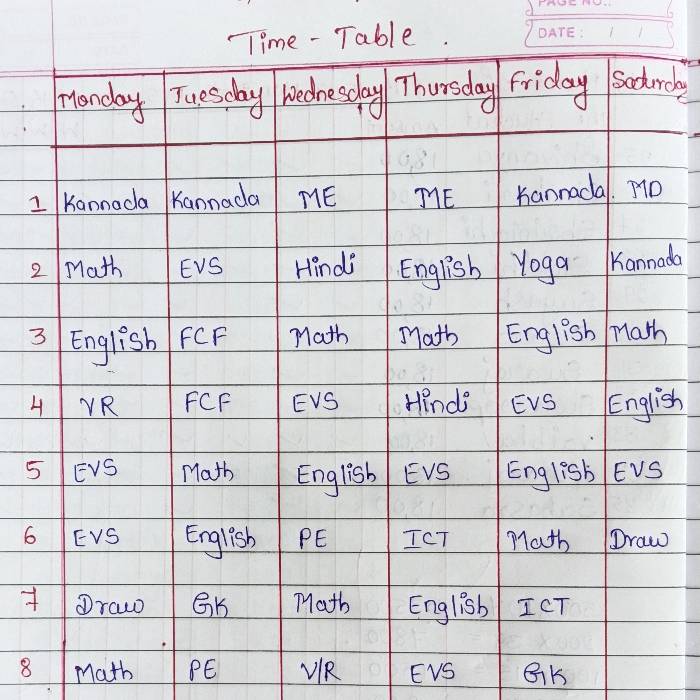 PAGE NO.:
DATE: / /
Time - Table.
Monday Tuesday Wednesday Thursday Friday Saturday
1 Kannada Kannada ME ME Kannada. MD
2 Math EVS Hindi English Yoga Kannada
3 English FCF Math Math English Math
4 VR FCF EVS Hindi EVS English
5 EVS Math English EVS English EVS
6 EVS English PE ICT Math Draw
7 Draw GK Math English ICT
8 Math PE V/R EVS GK